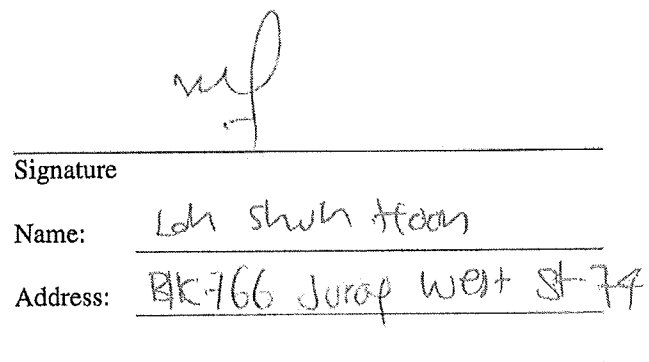 Signature
Name: Loh Shuh Hoon
Address: Blk-766 Jurong West St-74